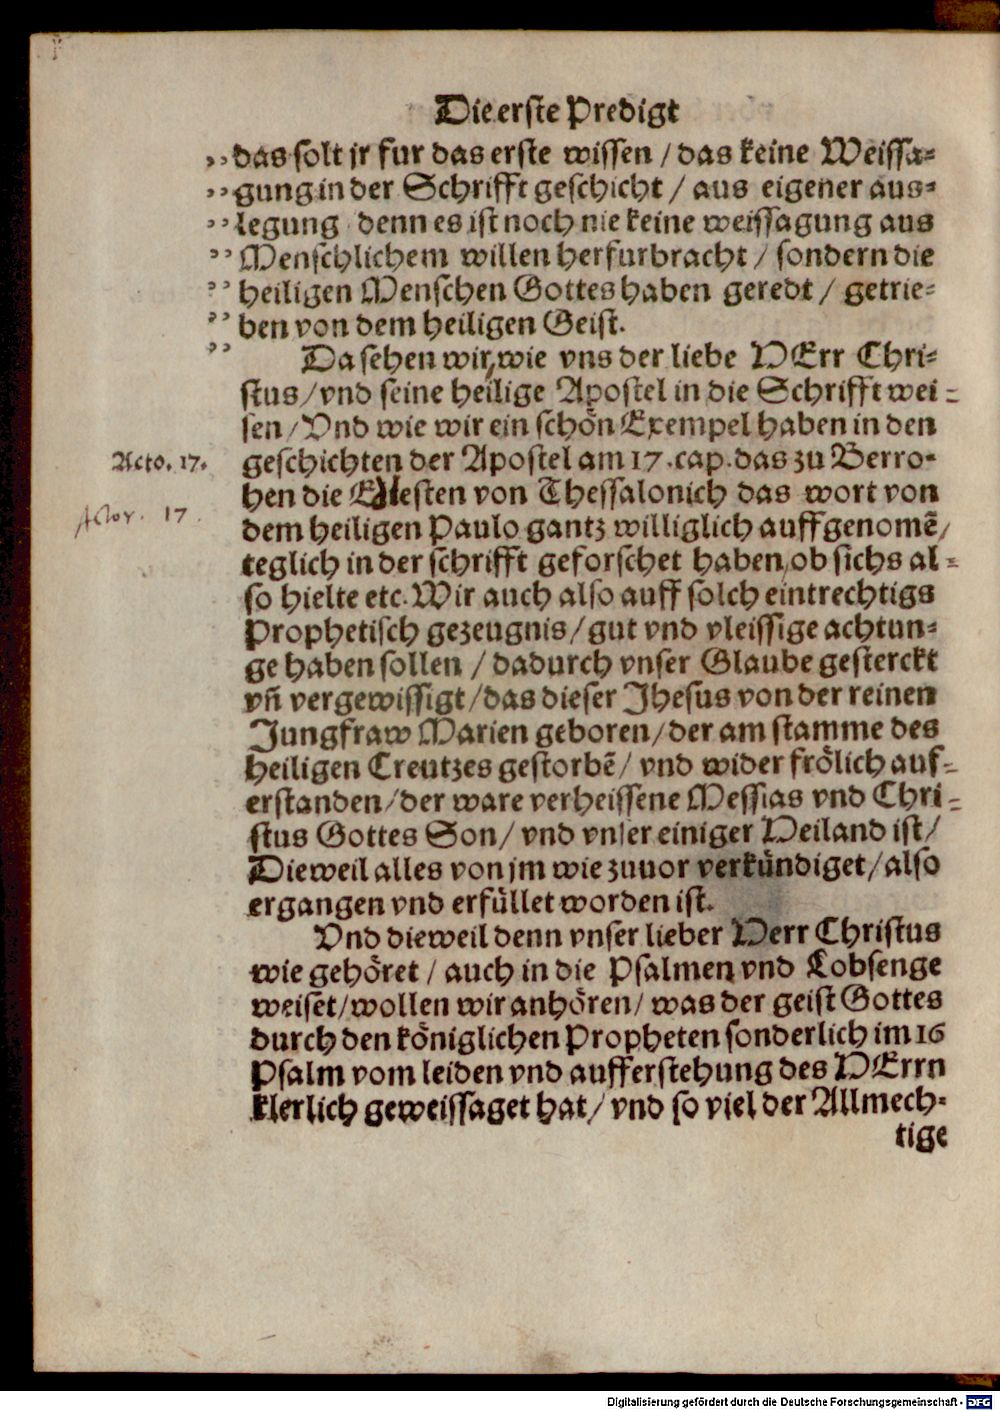 Die erste Predigt
,, das solt jr fur das erste wissen / das keine Weissa=
,, gung in der Schrifft geschicht / aus eigener aus=
,, legung denn es ist noch nie keine weissagung aus
,, Menschlichem willen herfurbracht / sondern die
,, heiligen Menschen Gottes haben geredt / getrie=
,, ben von dem heiligen Geist.
,, Da sehen wir, wie vns der liebe HErr Chri=
stus / vnd seine heilige Apostel in die Schrifft wei=
sen / Vnd wie wir ein schön Exempel haben in den
Acto. 17. geschichten der Apostel am 17. cap. das zu Berro=
hen die Elesten von Thessalonich das wort von
Actor. 17.
dem heiligen Paulo gantz williglich auffgenomẽ /
teglich in der schrifft geforschet haben, ob sichs al=
so hielte etc. Wir auch also auff solch eintrechtigs
Prophetisch gezeugnis / gut vnd vleissige achtun=
ge haben sollen / dadurch vnser Glaube gesterckt
vñ vergewissigt / das dieser Jhesus von der reinen
Jungfraw Marien geboren / der am stamme des
heiligen Creutzes gestorbẽ / vnd wider frölich auf=
erstanden / der ware verheissene Messias vnd Chri=
stus Gottes Son / vnd vnser einiger Heiland ist /
Dieweil alles von jm wie zuuor verkündiget / also
ergangen vnd erfüllet worden ist.
Vnd dieweil denn vnser lieber Herr Christus
wie gehöret / auch in die Psalmen vnd Lobsenge
weiset / wollen wir anhören / was der geist Gottes
durch den königlichen Propheten sonderlich im 16
Psalm vom leiden vnd aufferstehung des HErrn
klerlich geweissaget hat / vnd so viel der Allmech=
tige
Digitalisierung gefördert durch die Deutsche Forschungsgemeinschaft - DFG